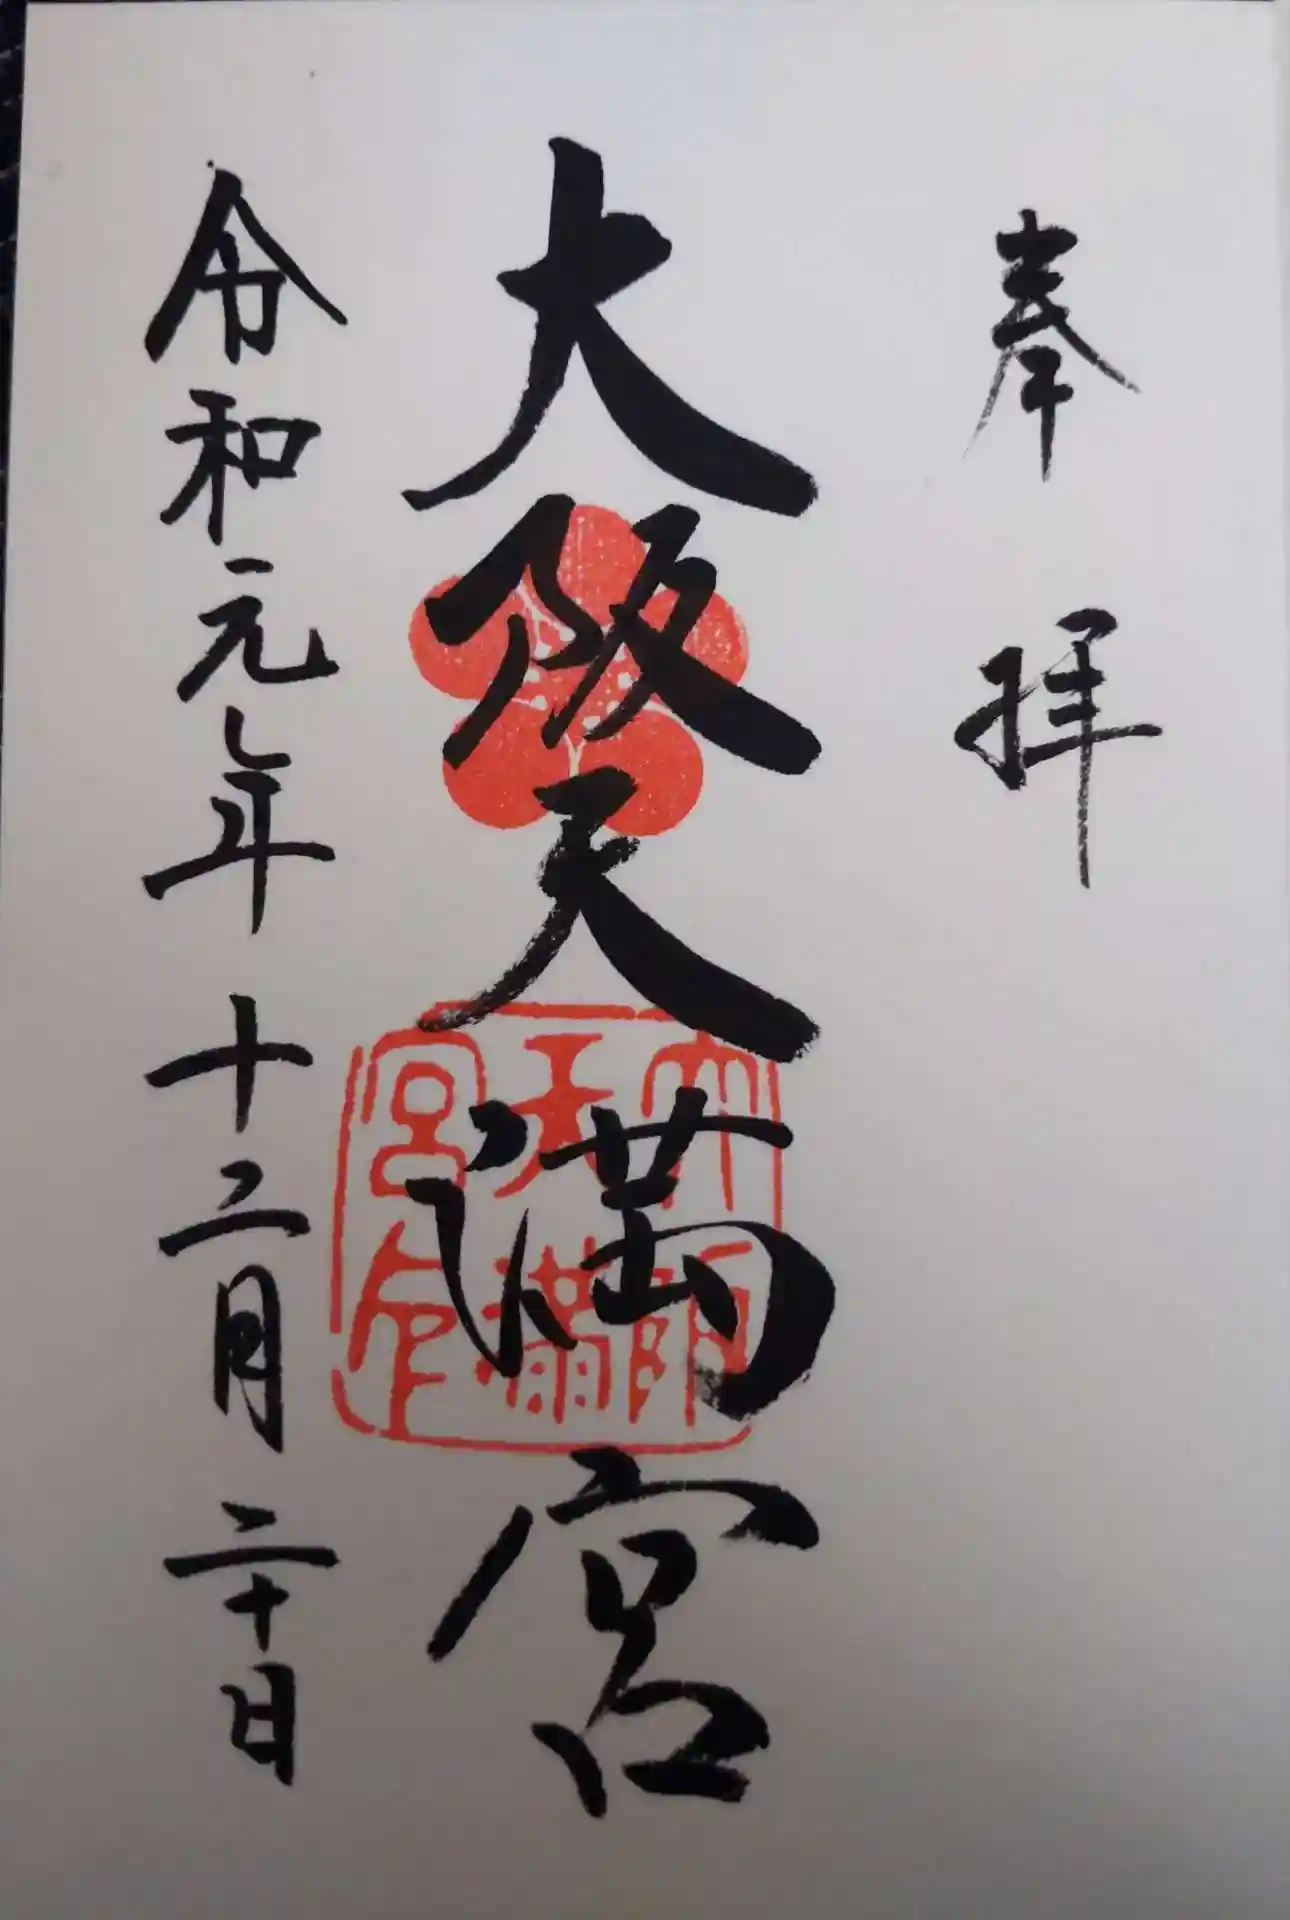 奉拝
大阪天満宮
令和元年十二月二十日
大阪
天満
宮印